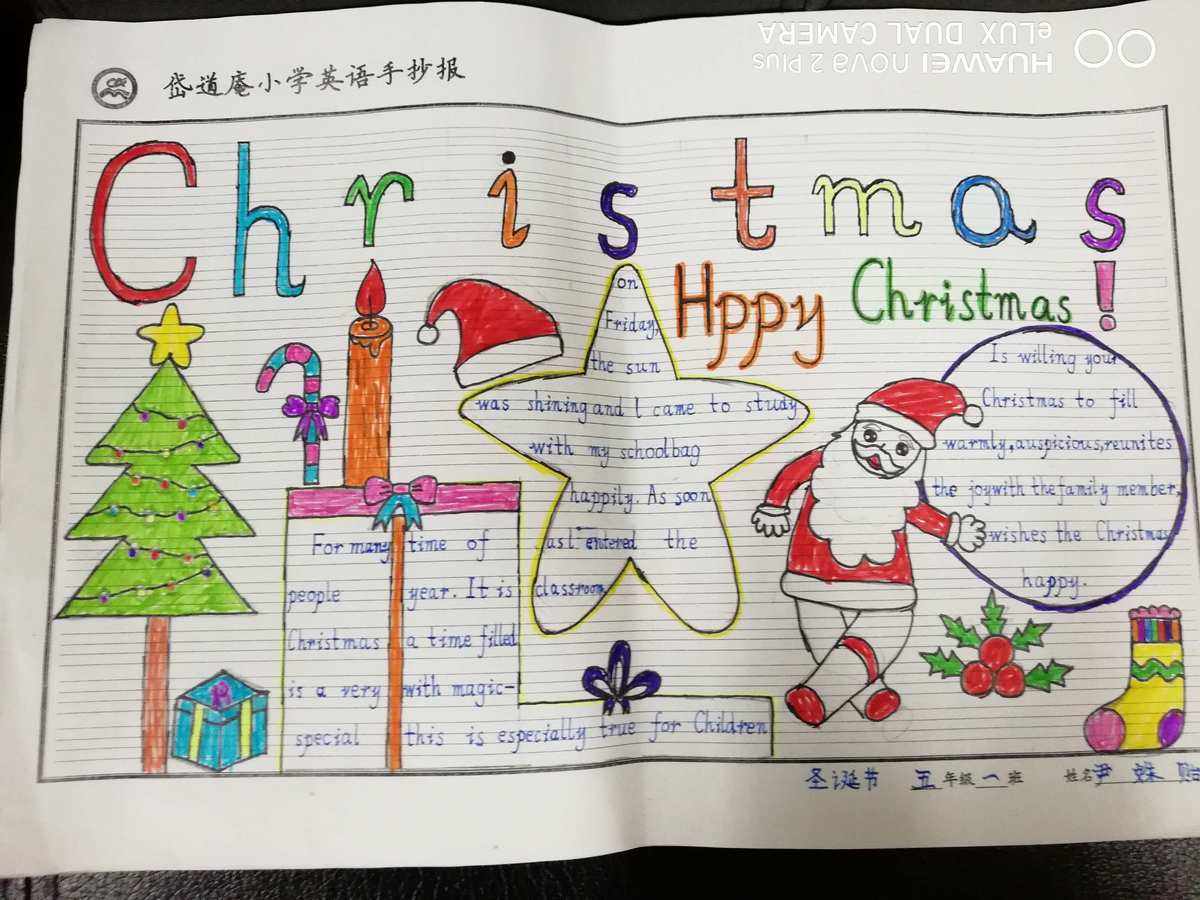 HUAWEI nova 2 Plus
eLUX DUAL CAMERA
岱道庵小学英语手抄报
Christmas
Hppy Christmas!
on
Friday,
the sun
was shining and I came to study
with my schoolbag
happily. As soon
as I entered the
classroom
Is willing your
Christmas to fill
warmly,auspicious,reunites
the joywith the family member,
wishes the Christmas
happy.
For many time of
people year. It is
Christmas a time filled
is a very with magic-
special this is especially true for Children
圣诞节 五年级一班 姓名尹姝贻